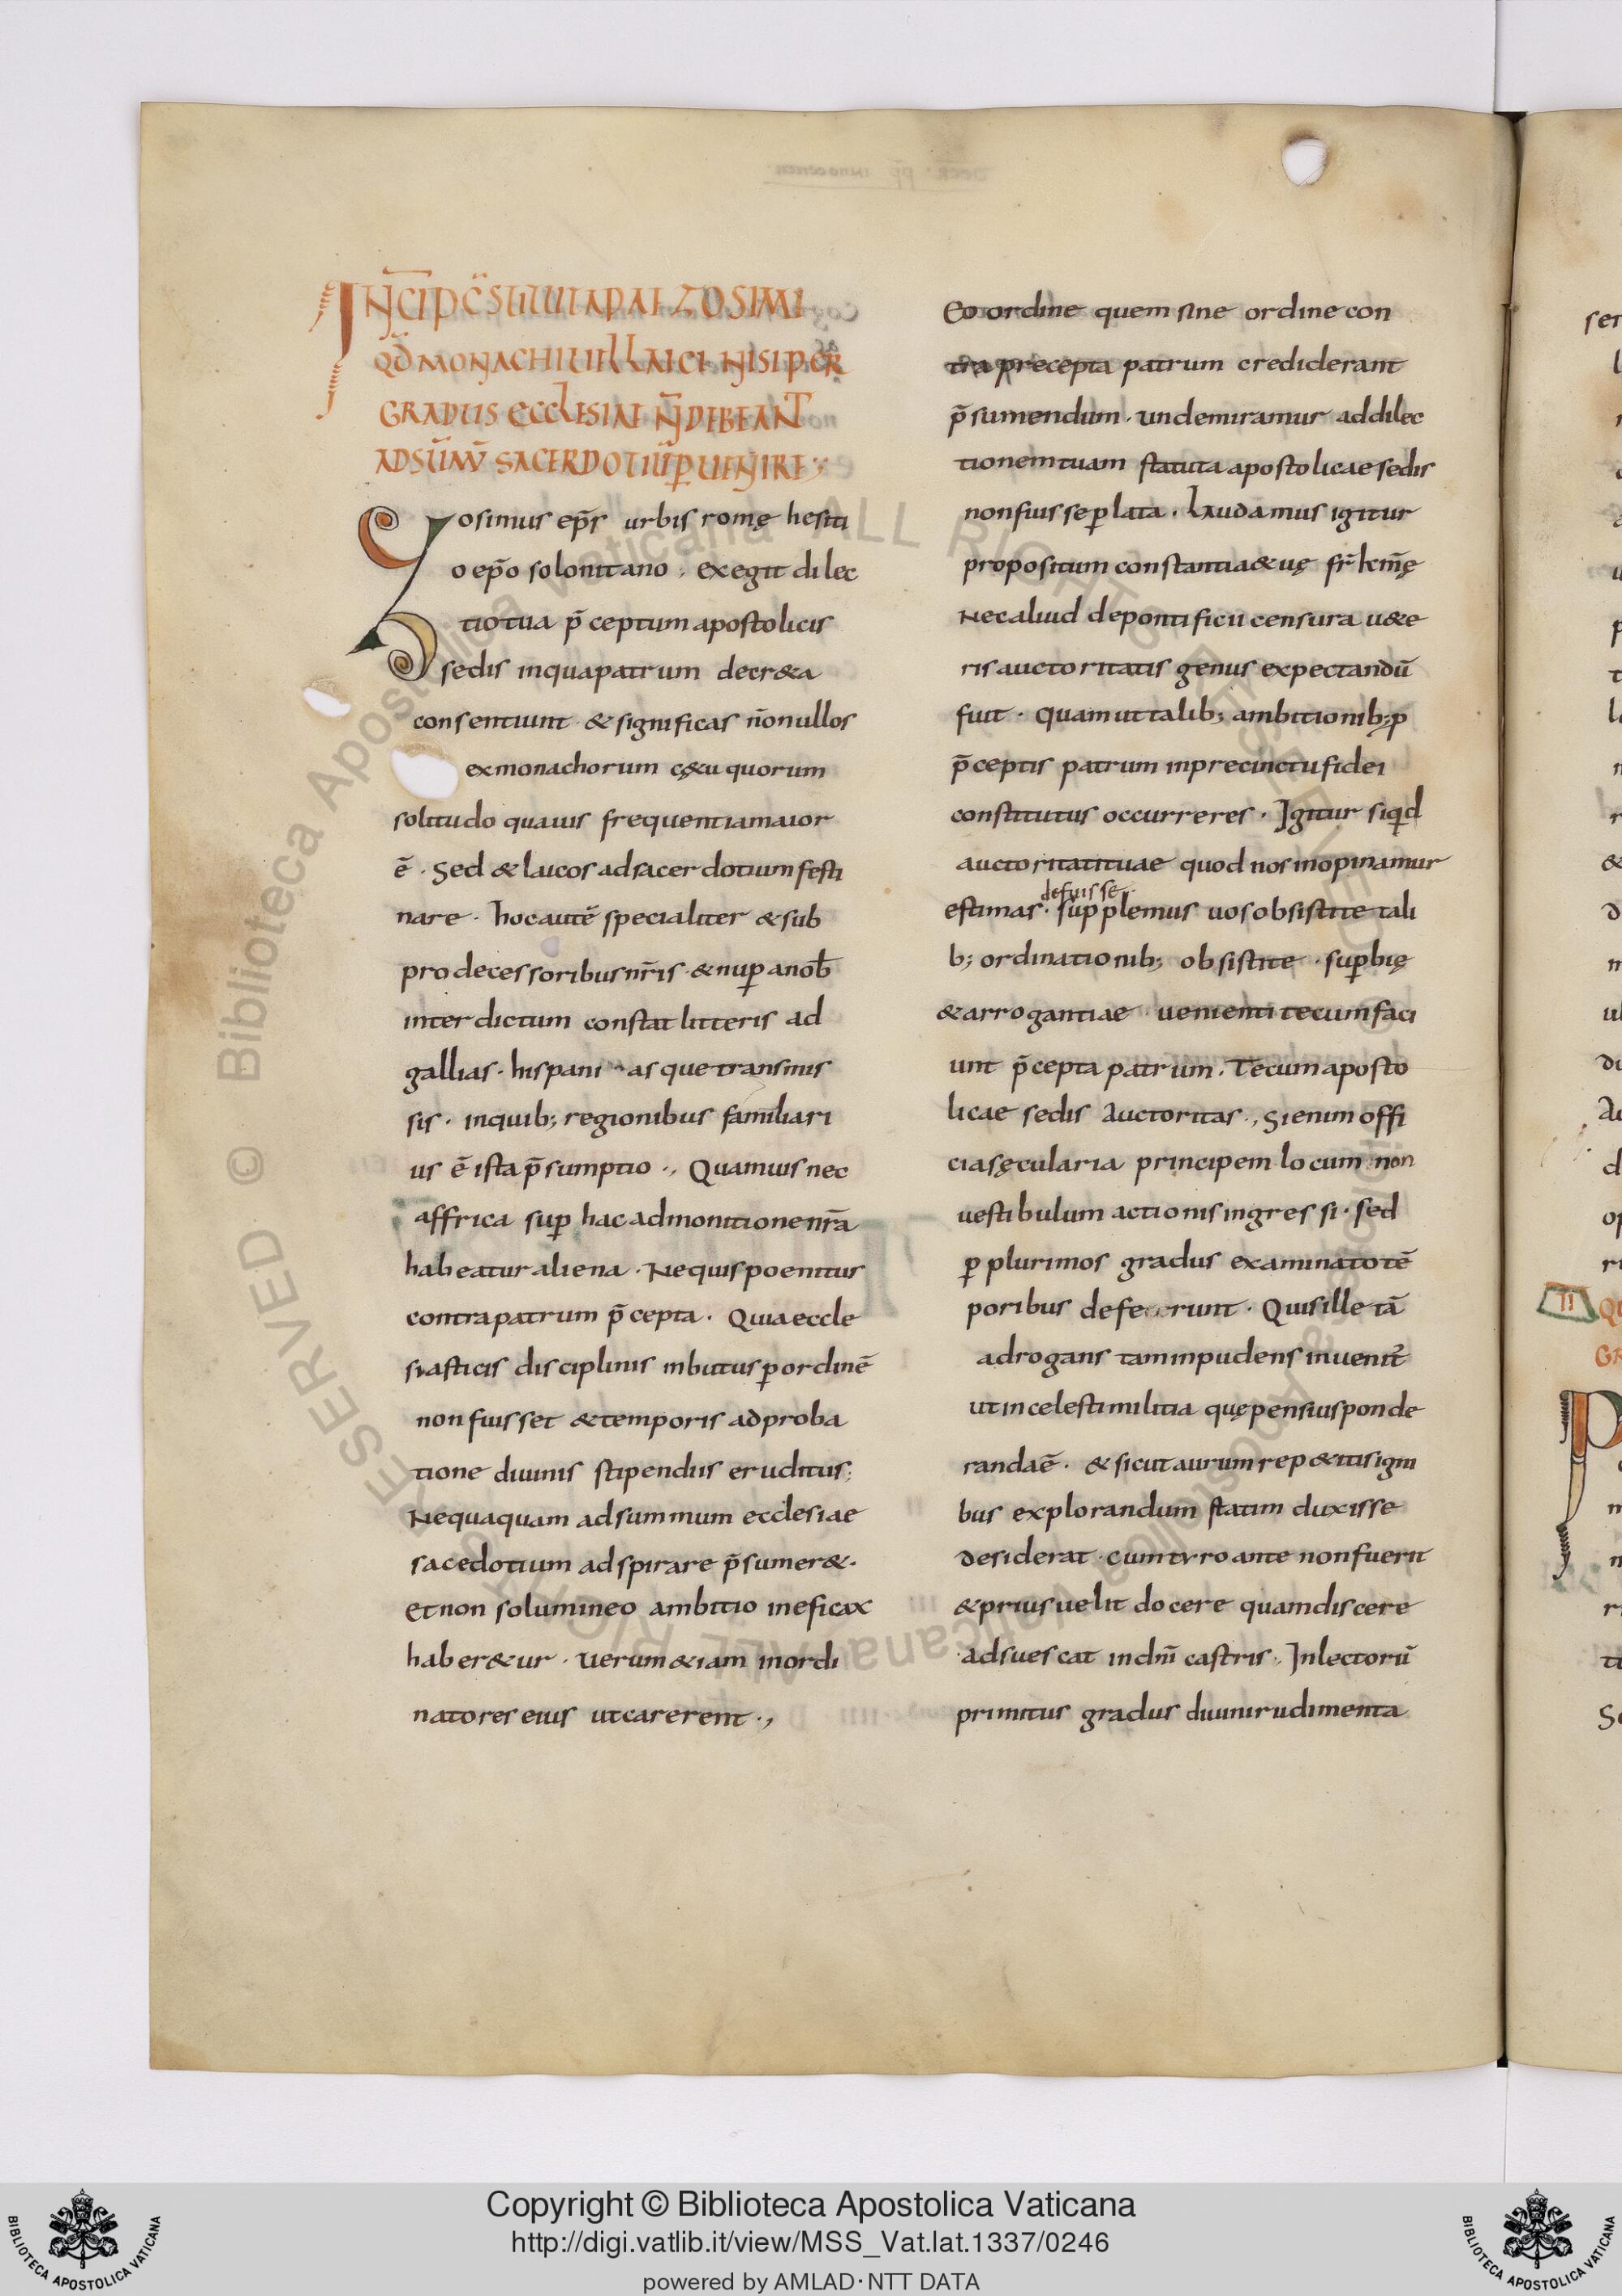 INCIP C̄STITUTA PAPAE ZOSIMI
QD̄ MONACHI UEL LAICI NISI PER
GRADUS ECCLESIAE N̄ DEBEANT
AD SŪMŪ SACERDOTIŪ P̱UENIRE
Zosimus ep̄s urbis romę hesiti
o ep̄o solonitano ; exegit dilec
tio tua p̄ceptum apostolicis
sedis inquapatrum decr&a
consentiunt · & significas n̄onullos
exmonachorum cę&u quorum
solitudo quauis frequentiamaior
ē · Sed & laicos adsacerdotium festi
nare · hocautē specialiter & sub
prodecessoribus nr̄is · & nup̱ anob̄
interdictum constat litteris ad
gallias · hispani as que transmis
sis · inquib; regionibus familiari
us ē ista p̄sumptio ·, Quamuis nec
affrica sup̱ hac admonitione nr̄a
habeatur aliena · Nequis poenitus
contrapatrum p̄cepta · Quia eccle
siasticis disciplinis inbutus p̱ ordinē
non fuisset & temporis adproba
tione diuinis stipendiis eruditus;
Nequaquam adsummum ecclesiae
sacedotium adspirare p̄sumer& ·
Et non solumineo ambitio ineficax
haber&ur · uerum &iam inordi
natores eius ut carerent ·,
Eo ordine quem sine ordine con
tra precepta patrum crediderant
p̄sumendum · unde miramur addilec
tionem tuam statuta apostolicae sedis
nonfuisse p̱lata · Laudamus igitur
propositum constantia& uę fr̄ km̄ę
Nec aliud depontificii censura u&e
ris auctoritatis genus expectandū
fuit · quam ut talib; ambitionib; p̱
p̄ceptis patrum inprecinctu fidei
constitutus occurreres · Igitur siq̱d
auctoritati tuae quod nos inopinamur
defuisse
estimas · supplemus uos obsistite tali
b; ordinationib; obsistite · sup̱bię
& arrogantiae uenienti tecum faci
unt p̄cepta patrum · Tecum aposto
licae sedis auctoritas ·, Si enim offi
cia sęcularia principem locum non
uestibulum actionis ingressi · sed
p̱ plurimos gradus examinato tē
poribus defe runt · Quis ille tā
adrogans tam inpudens inuenit̄
ut in celesti militia quę pensius ponde
randa ē · & sicut aurum rep&itis igni
bus explorandum statim dux isse
desiderat · cum tyro ante non fuerit
& prius uelit docere quam discere
adsuescat in dn̄i castris · In lectorū
primitus gradus diuini rudimenta
Copyright © Biblioteca Apostolica Vaticana
http://digi.vatlib.it/view/MSS_Vat.lat.1337/0246
powered by AMLAD·NTT DATA
BIBLIOTECA APOSTOLICA VATICANA
BIBLIOTECA APOSTOLICA VATICANA